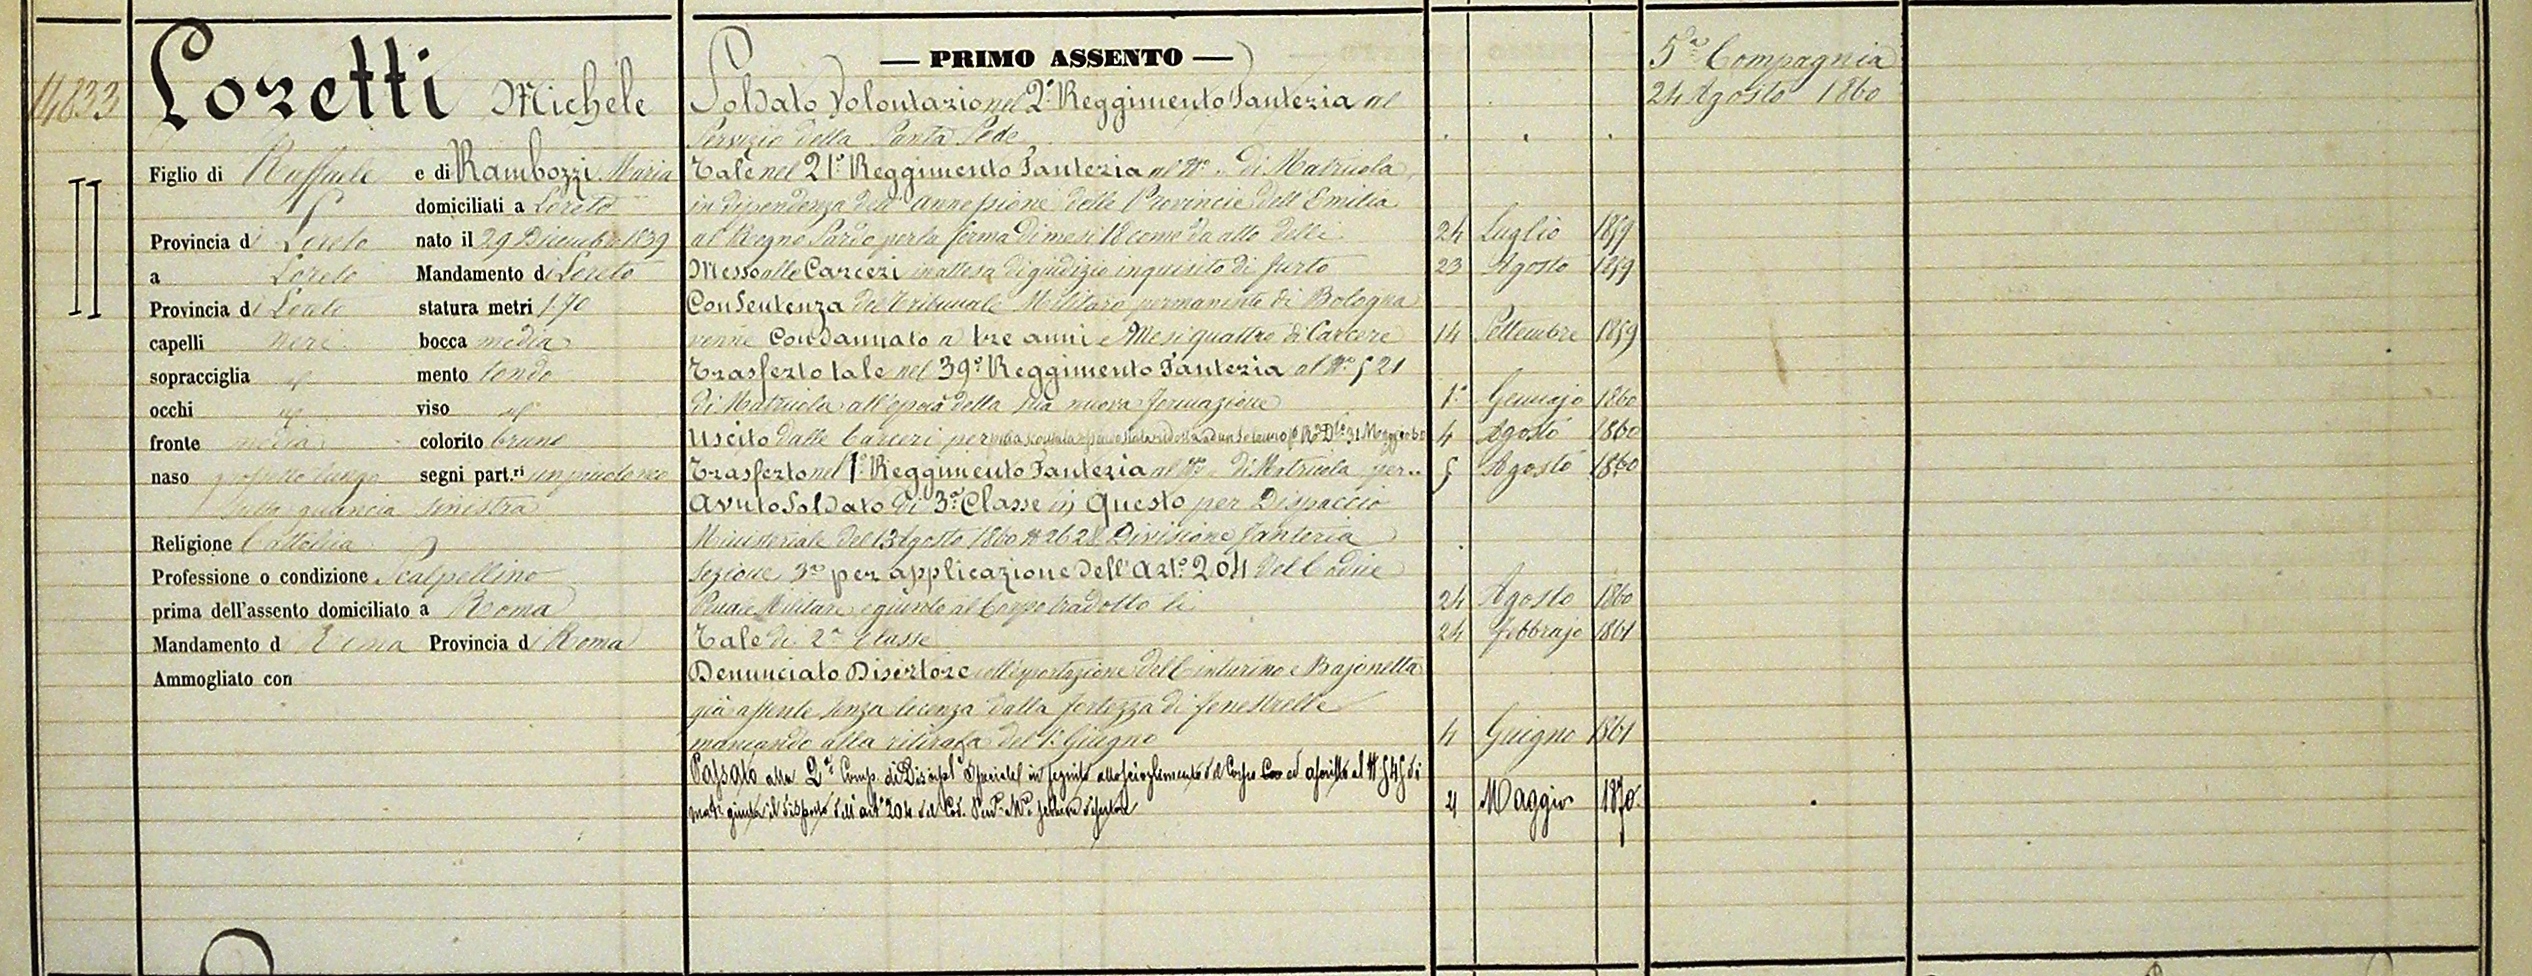 14833
Loretti Michele
Figlio di Raffaele e di Rambozzi Maria
domiciliati a Loreto
Provincia di Loreto nato il 29 Dicembre 1839
a Loreto Mandamento di Loreto
Provincia di Loreto statura metri 1.70
capelli neri bocca media
sopracciglia id mento tondo
occhi id viso id
fronte media colorito bruno
naso lungo segni part.ri un piccolo neo
sulla guancia sinistra
Religione Cattolica
Professione o condizione Scalpellino
prima dell'assento domiciliato a Roma
Mandamento di Roma Provincia di Roma
Ammogliato con
— PRIMO ASSENTO —
Soldato Volontario nel 2° Reggimento Fanteria al
Servizio della Santa Sede
Tale nel 21° Reggimento Fanteria al N° di Matricola
in dipendenza dell'annessione delle Provincie dell'Emilia
al Regno Sardo per la ferma di mesi 18 come da atto delli 24 Luglio 1859
Messo alle Carceri in attesa di giudizio inquisito di furto 23 Agosto 1859
Con Sentenza del Tribunale Militare permanente di Bologna
venne Condannato a tre anni e Mesi quattro di Carcere 14 Settembre 1859
Trasferto tale nel 39° Reggimento Fanteria al N° 521
di Matricola all'epoca della sua nuova formazione 1° Gennajo 1860
Uscito dalle Carceri per R° D.to 31 Maggio 60 4 Agosto 1860
Trasferto nel 1° Reggimento Fanteria al N° di Matricola per.. 5 Agosto 1860
Avuto Soldato di 3a Classe in Questo per Dispaccio
Ministeriale del 13 Agosto 1860 N 2628 Divisione Fanteria
Sezione 3a per applicazione dell'Art° 204 del Codice
Penale Militare e giunto al Corpo tradotto li 24 Agosto 1860
Tale di 2a Classe 24 Febbrajo 1861
Denunciato Disertore coll'esportazione del Cinturino e Bajonetta
già assente senza licenza dalla fortezza di Fenestrelle
mancando alla ritirata del 1° Giugno 4 Giugno 1861
Passato alla 2a Comp. di Discipl. Speciale in seguito allo scioglimento del Corpo ed ascritto al N 545 di
mat. giusta il disposto dell'art° 204 del Cod. Pen. M.re 4 Maggio 1870
5a Compagnia
24 Agosto 1860